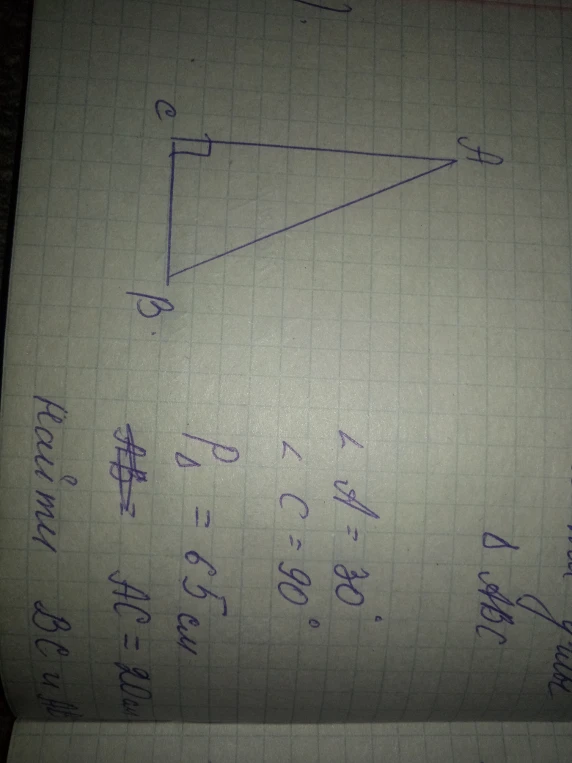 Δ ABC
∠ A = 30°
∠ C = 90°
P Δ = 65 см
AC = 20см
Найти BC и
A
C
B